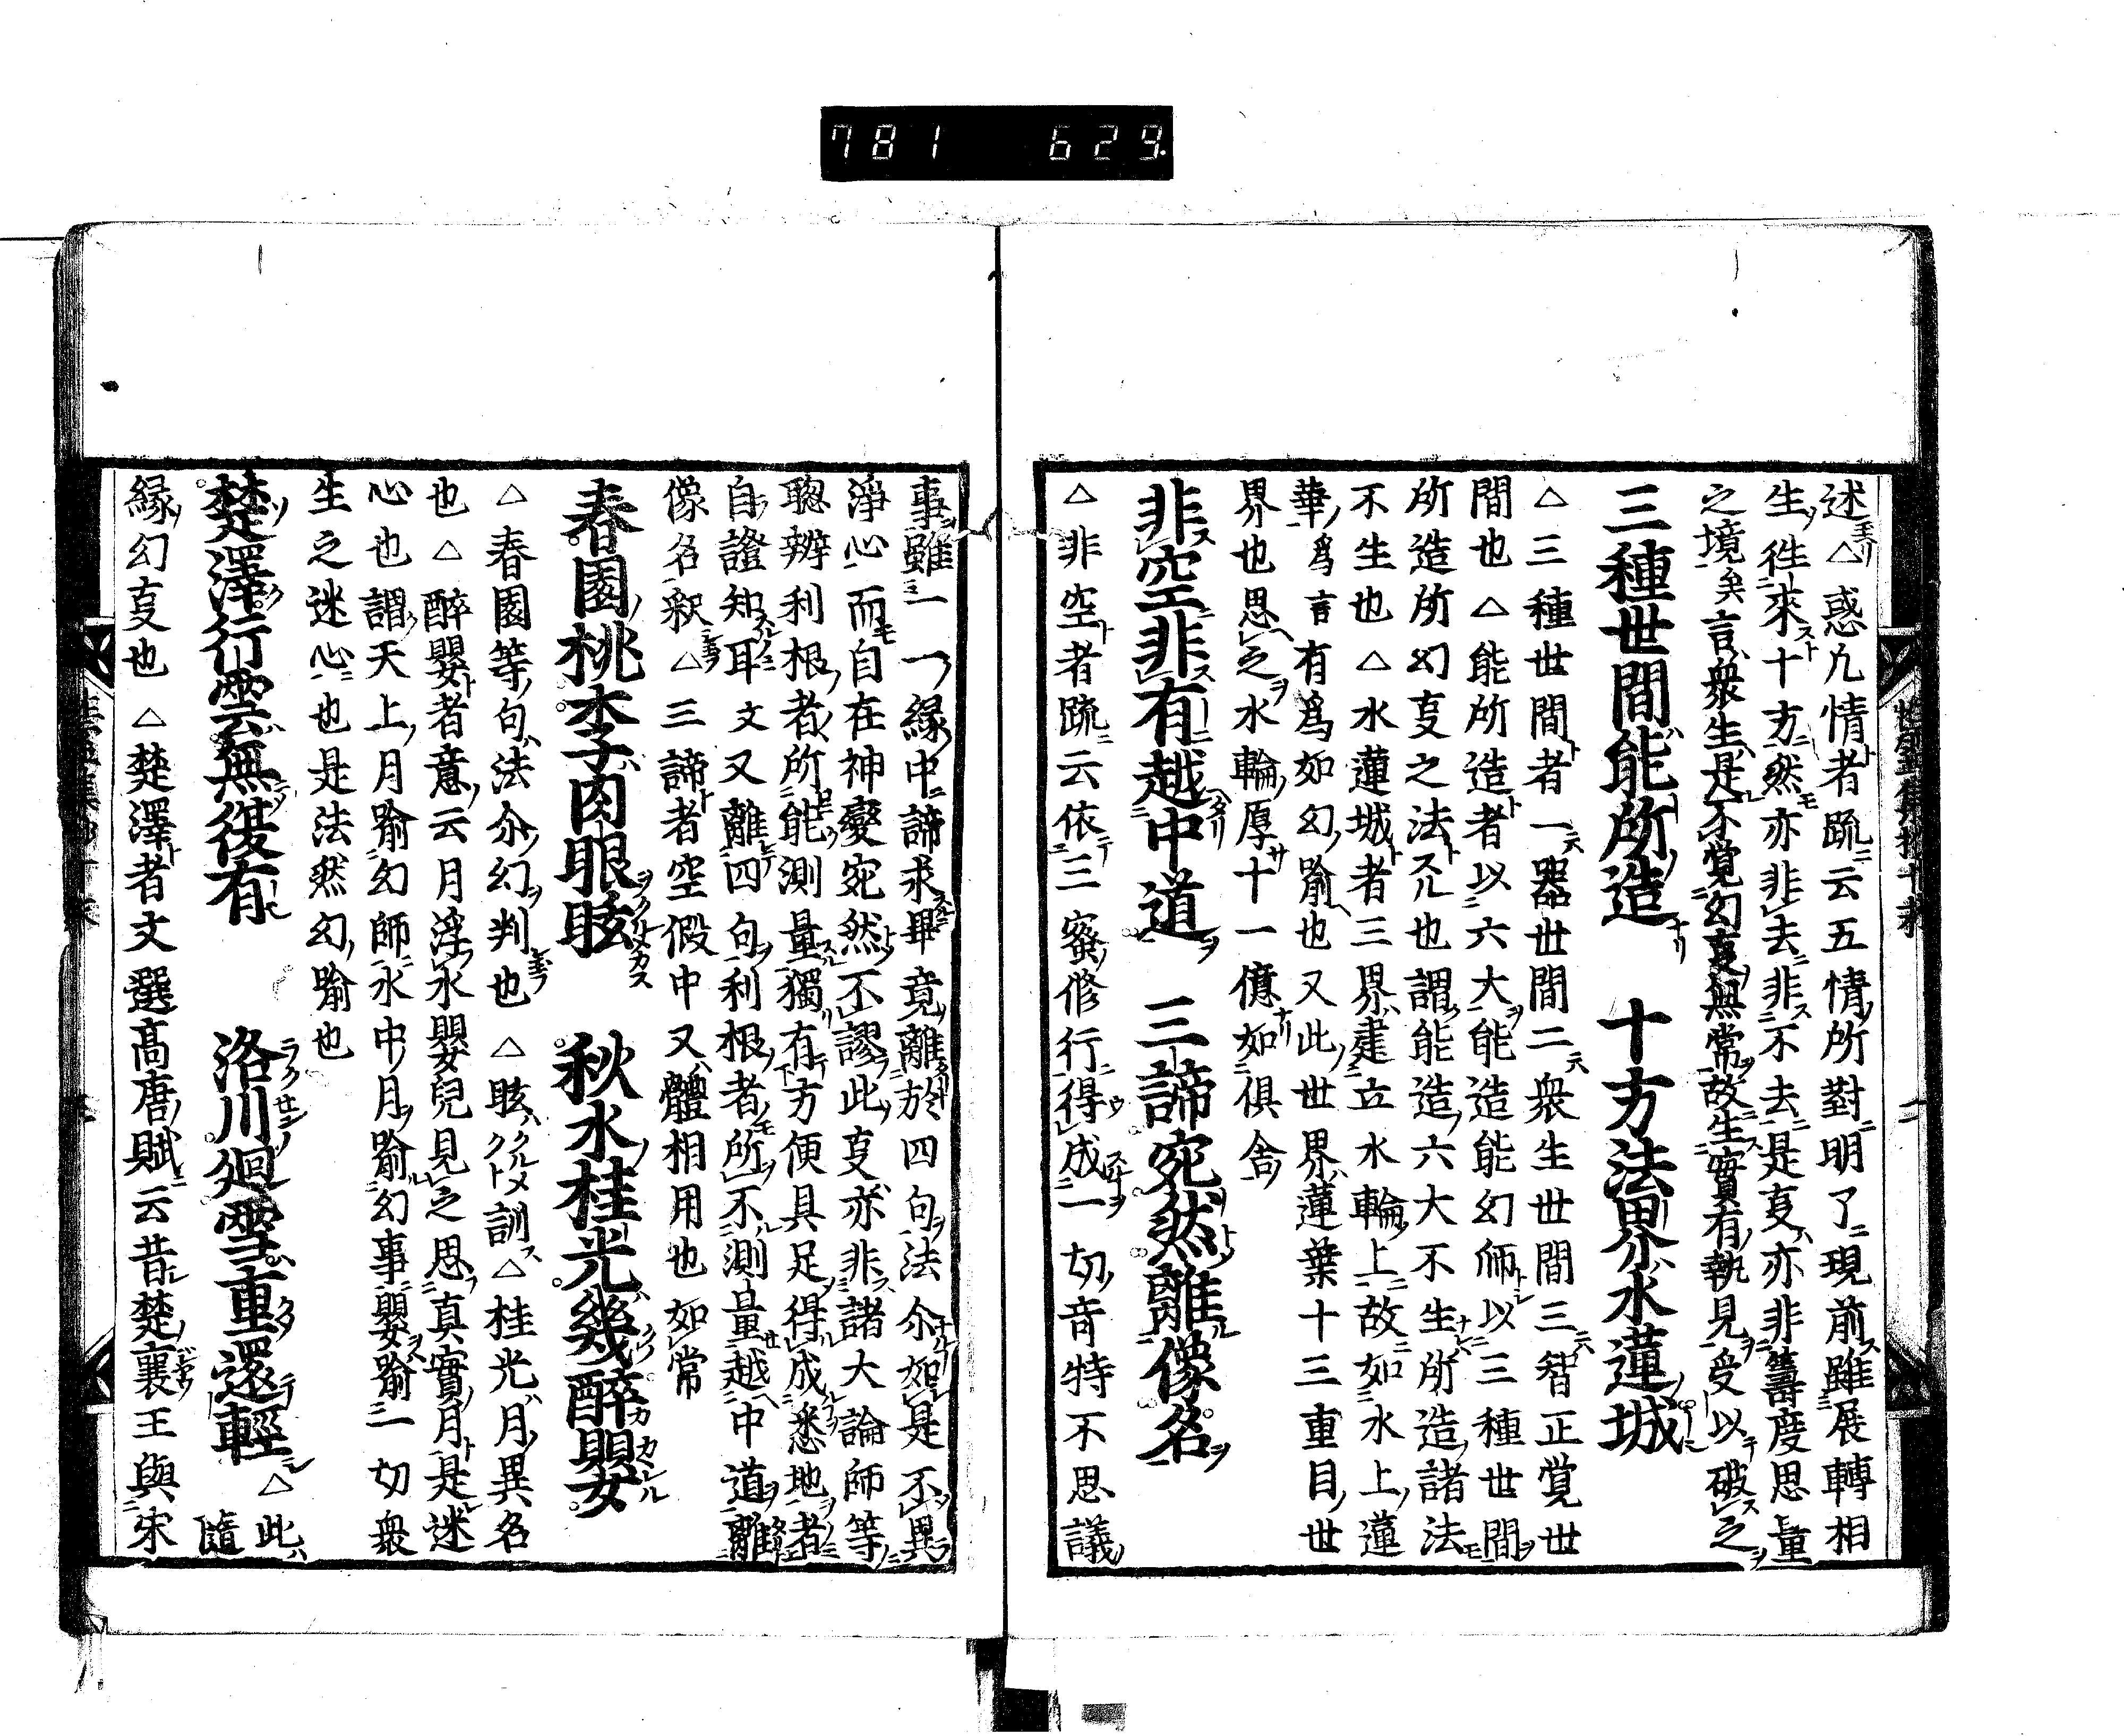 781 629
述△惑凡情者䟽云五情所對明了現前雖展轉相
生徃來十方然亦非去非不去是㕝亦非籌度思量
之境矣言衆生是不覚幻㕝無常故生實有執見受以破之
三種世間能所造　十方法界水蓮城
△三種世間者一器世間二衆生世間三智正覚世
間也△能所造者以六大能造能幻師以三種世間
所造所幻㕝之法尒也謂能造六大不生所造諸法
不生也△水蓮城者三界建立水輪上故如水上蓮
華為言有爲如幻喻也又此世界蓮葉十三重目世
界也思之水輪厚十一億如倶舍
非空非有越中道　三諦宛然離像名
△非空者䟽云依三密修行得成一切竒特不思議
事雖一一緣中諦求畢竟離於四句法尒如是不異
淨心而自在神變宛然不謬此㕝亦非諸大論師等
聰辨利根者所能測量獨有方便具足得成悉地者
自證知耳文又離四句利根者所不測量越中道離
像名釈△三諦者空假中又體相用也如常
春園桃李肉眼眩　秋水桂光幾醉嬰
△春園等句法尒幻判也△眩クルメクト訓△桂光月異名
也△醉嬰者意云月淫水嬰兒見之思真實月是迷
心也謂天上月喻幻師水中月喻幻事嬰喻一切衆
生之迷心也是法然幻喻也
楚澤行雲無復有　洛川廻雪重還輕　△此隨
緣幻㕝也△楚澤者文選高唐賦云昔楚襄王與宋